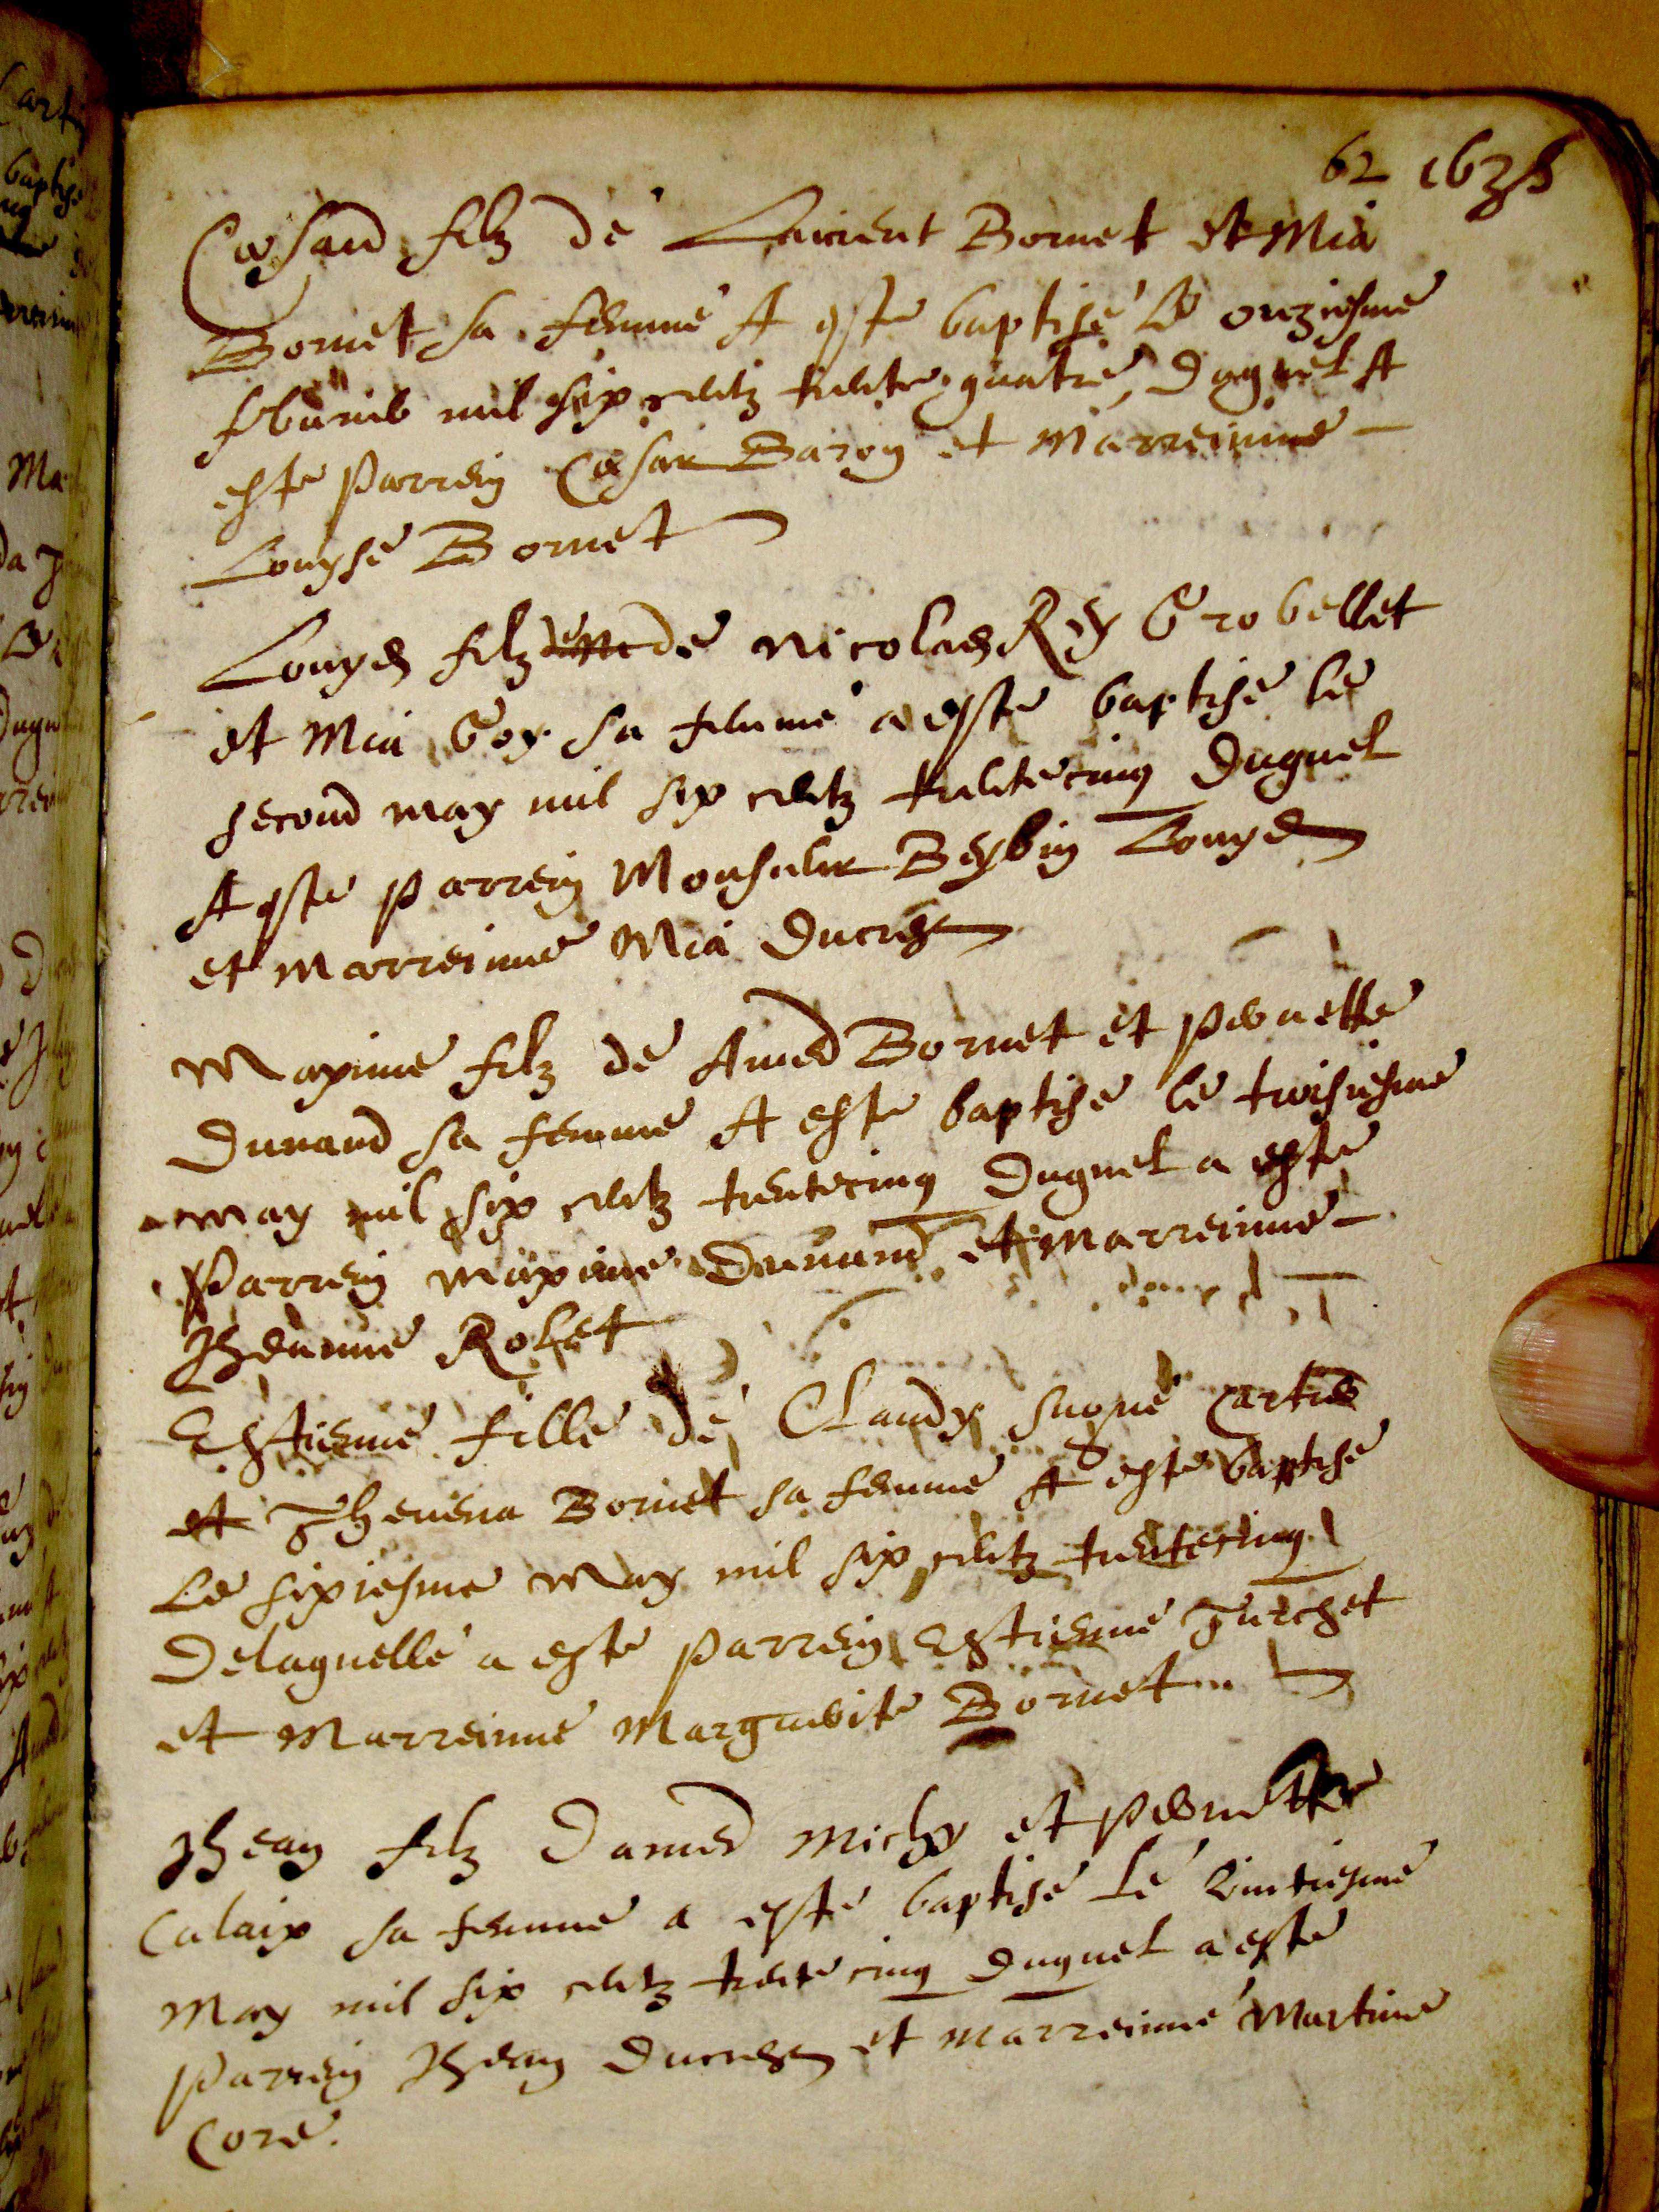 62 1635
Cæsard filz de Laurent Bornet et Mia
Bornet sa femme A este baptisé le onziesme
feburié mil six centz trente quatre, Duquel A
este Parrein Cæsar Baron et Marreinne
Louyse Bornet
Louys filz de Nicolas Rey Grobellet
et Mia Goy sa femme a este baptisé le
second may mil six centz trentecinq Duquel
A este Parrein Monsieur Louys
et Marreinne Mia Ducrest
Maxime filz de Amed Bornet et Pernette
Durand sa femme A este baptisé le troisiesme
may mil six centz trentecinq Duquel a este
Parrein Maxime Durand et Marreinne
Jheanne Rolet
Estienne fille de Claudy Cartier
et Thevena Bornet sa femme A este baptisé
Le sixiesme May mil six centz trentecinq
Delaquelle a este Parrein Estienne Turchet
et Marreinne Marguerite Bornet
Jhean filz Damed Michy et Pernette
Calaix sa femme a este baptisé Le vintiesme
May mil six centz trente cinq Duquel a este
Parrein Jhean Ducrest et Marreinne Martine
Core.